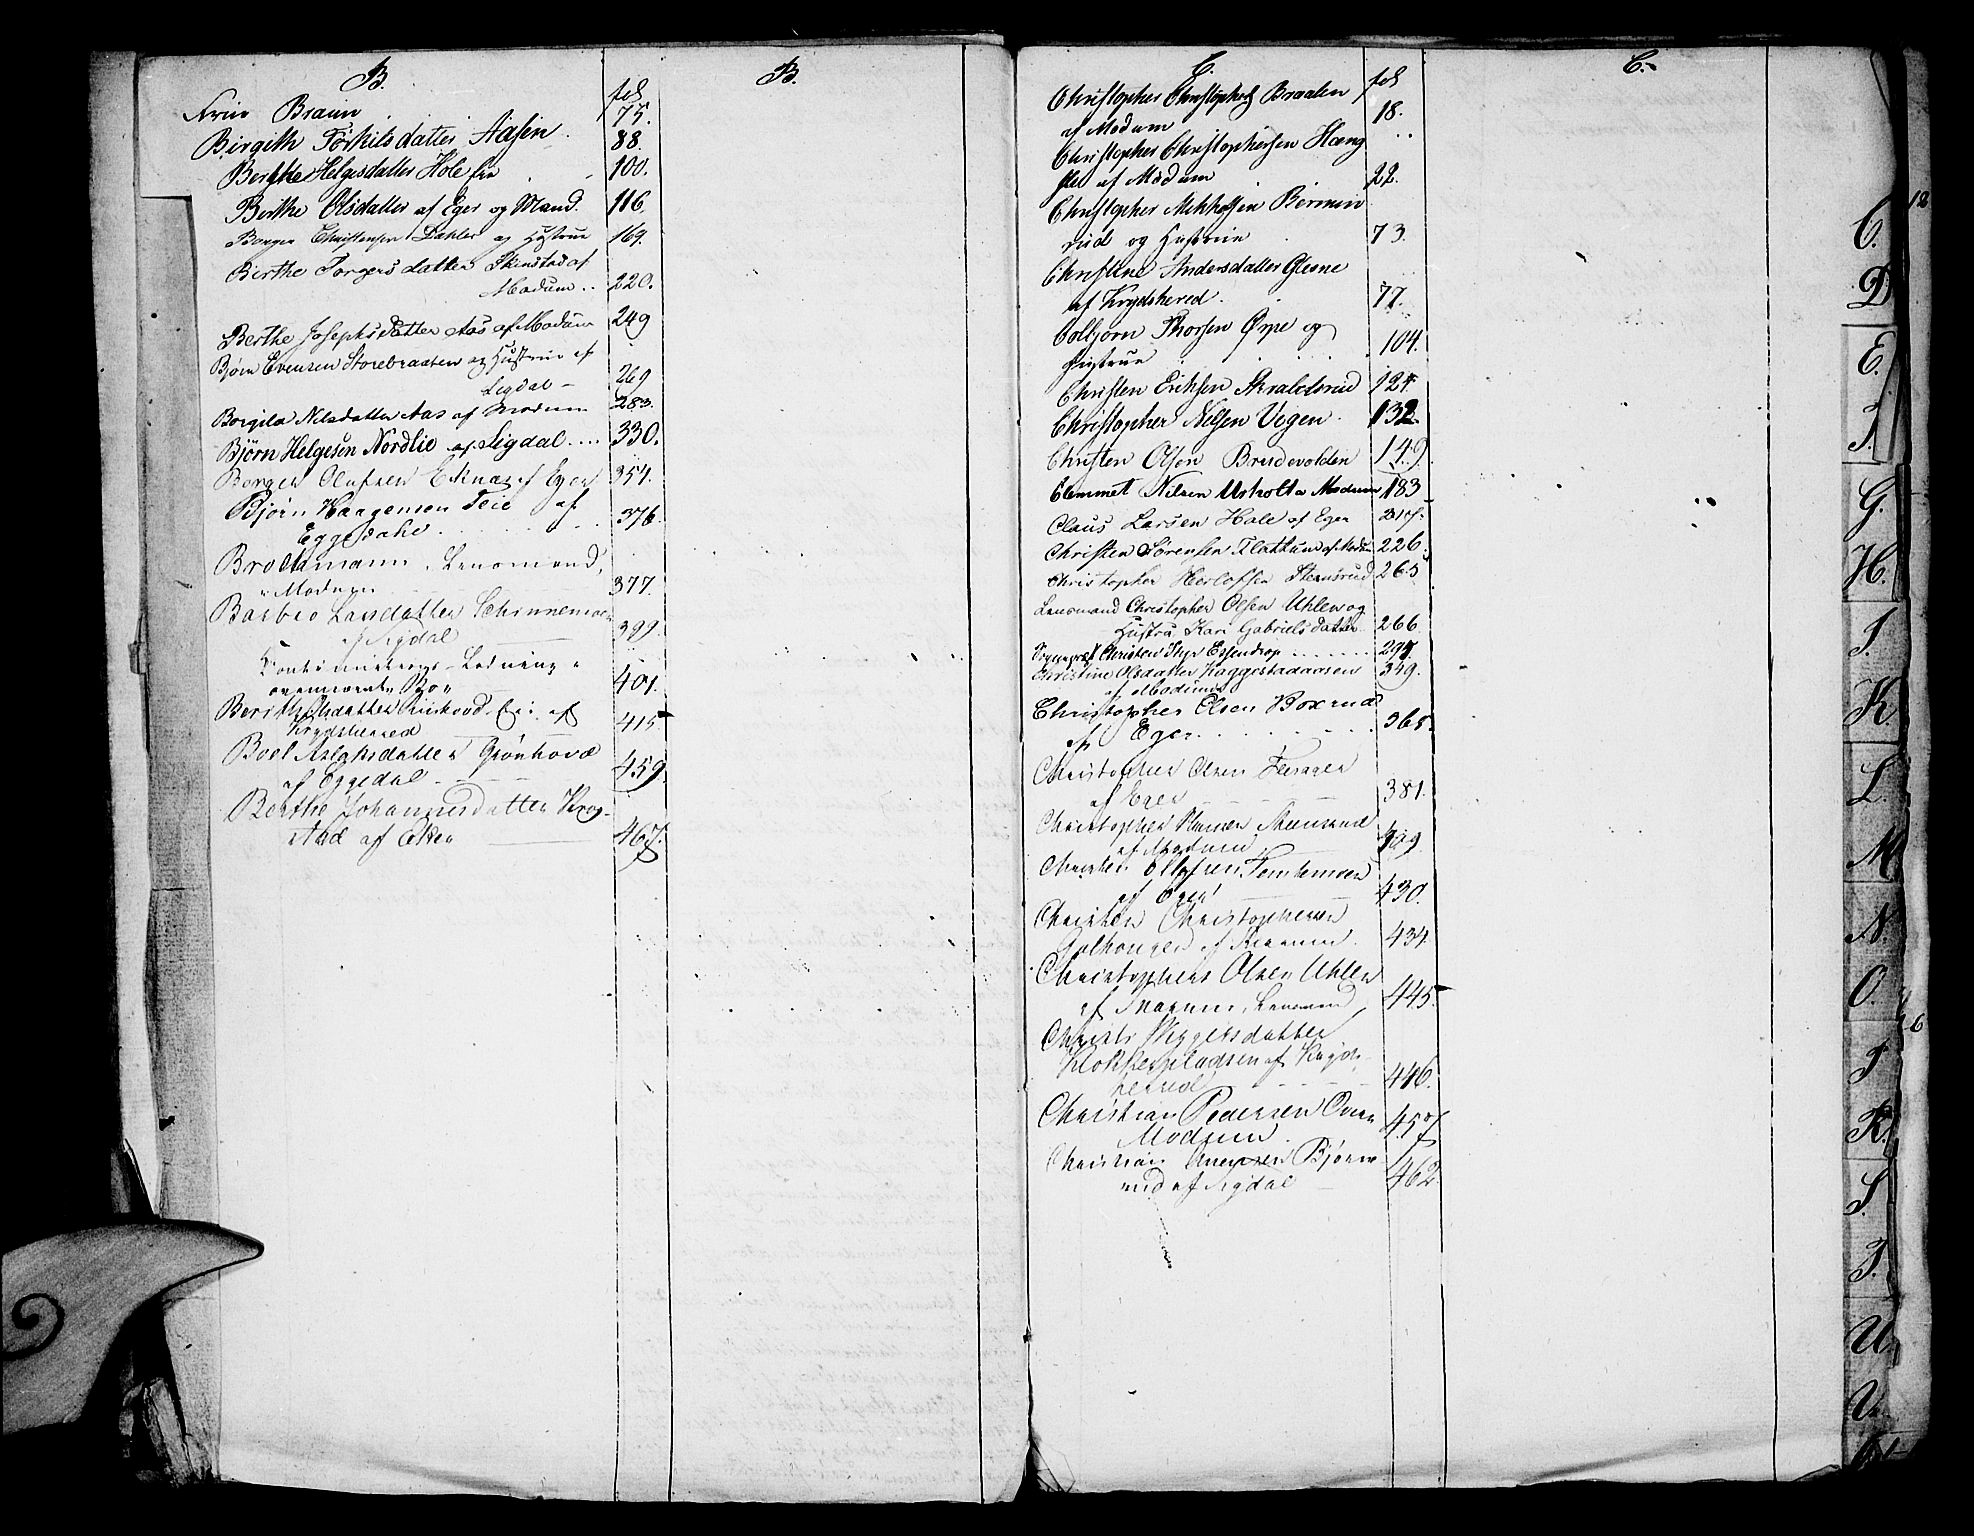 B.
fol
Frue Braun 75.
Birgith Torkilsdatter Aasen 88.
Berthe Helgesdatter Hole 100.
Berthe Olsdatter af Eger og Mand. 116.
Borger Christensen Dahler og Hustrue 169.
Berthe Torgersdatter Skinstad af
Modum .. 220.
Berthe Josephsdatter Aas af Modum 249
Bjørn Evensen Storebraaten og Hustrue af
Sigdal - 269
Borgila Nilsdatter Aas af Modum 283.
Bjørn Helgesen Nordlie af Sigdal .... 330.
Borger Olufsen af Eger 354.
Bjørn Haagensen Teie af
Eggedahl . 376.
Brockmann, Lensmand,
i Modum 377.
Barbro Larsdatter
af Sigdal 399.
Ladning i
ovennævnte Bo 401.
Berith Olsdatter af
Krydsherred 415
Boel Aslaksdatter Grønhovd
af Eggedal 459.
Berthe Johannesdatter Krog-
stad af Eker 467.
B.
C.
fol
Christopher Christophers Braaten
af Modum 18.
Christopher Christophersen Hæng
af Modum 22.
Christopher Mikkelsen Bermin
rud og Hustrue 73.
Christine Andersdatter Glesne
af Krydsherred. 77.
Colbjørn Thorsen Ørpe og
Hustrue 104.
Christen Eriksen Skralsrud 124
Christopher Nilsen Vegen 132
Christen Olsen Brudevolden 149.
Clemmett Nilsen Usholt a Modum 183
Claus Larsen Hole af Eger 217.
Christen Sørensen Flattum af Modum 226.
Christopher Herlofsen Steensrud 265
Lensmand Christopher Olsen Uhlen og
Hustru Kari Gabrielsdatter 266
Christen Thyr Essendrop 297.
Christine Olsdatter Kaggestadaasen 349.
af Modum
Christopher Olsen Boxrud
af Eger 365.
Christopher Olsen
af Eger 381.
Christopher Hansen Steensrud
af Modum 409
Christen Ellefsen
af Eger 430.
Christen Christophersen
af Modum. 434.
Christopher Olsen Uhlen
af Modum, Lensmand 445.
Christi Viggersdatter
Klokkerpladsen af Kryds
herred 446.
Christian Pedersen Overn
Modum. 457.
Christian Andersen Bjørne
rud af Sigdal 462.
C.
12
C.
D
E.
F.
G.
H.
I.
K.
L.
M
N.
O.
6
P.
R.
S.
T.
U.
V.